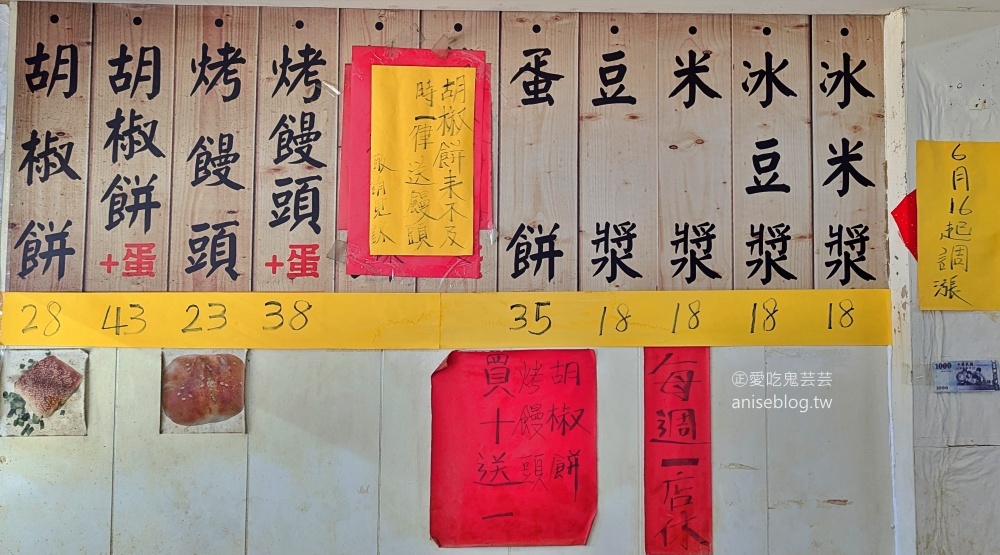 胡椒餅
胡椒餅+蛋
烤饅頭
烤饅頭+蛋
胡椒餅未不及
時一律送饅頭
蛋餅
豆漿
米漿
冰豆漿
冰米漿
28
43
23
38
35
18
18
18
18
胡椒餅
烤饅頭
買十送一
每週一店休
6月16起調漲
1000
㊣愛吃鬼芸芸
aniseblog.tw